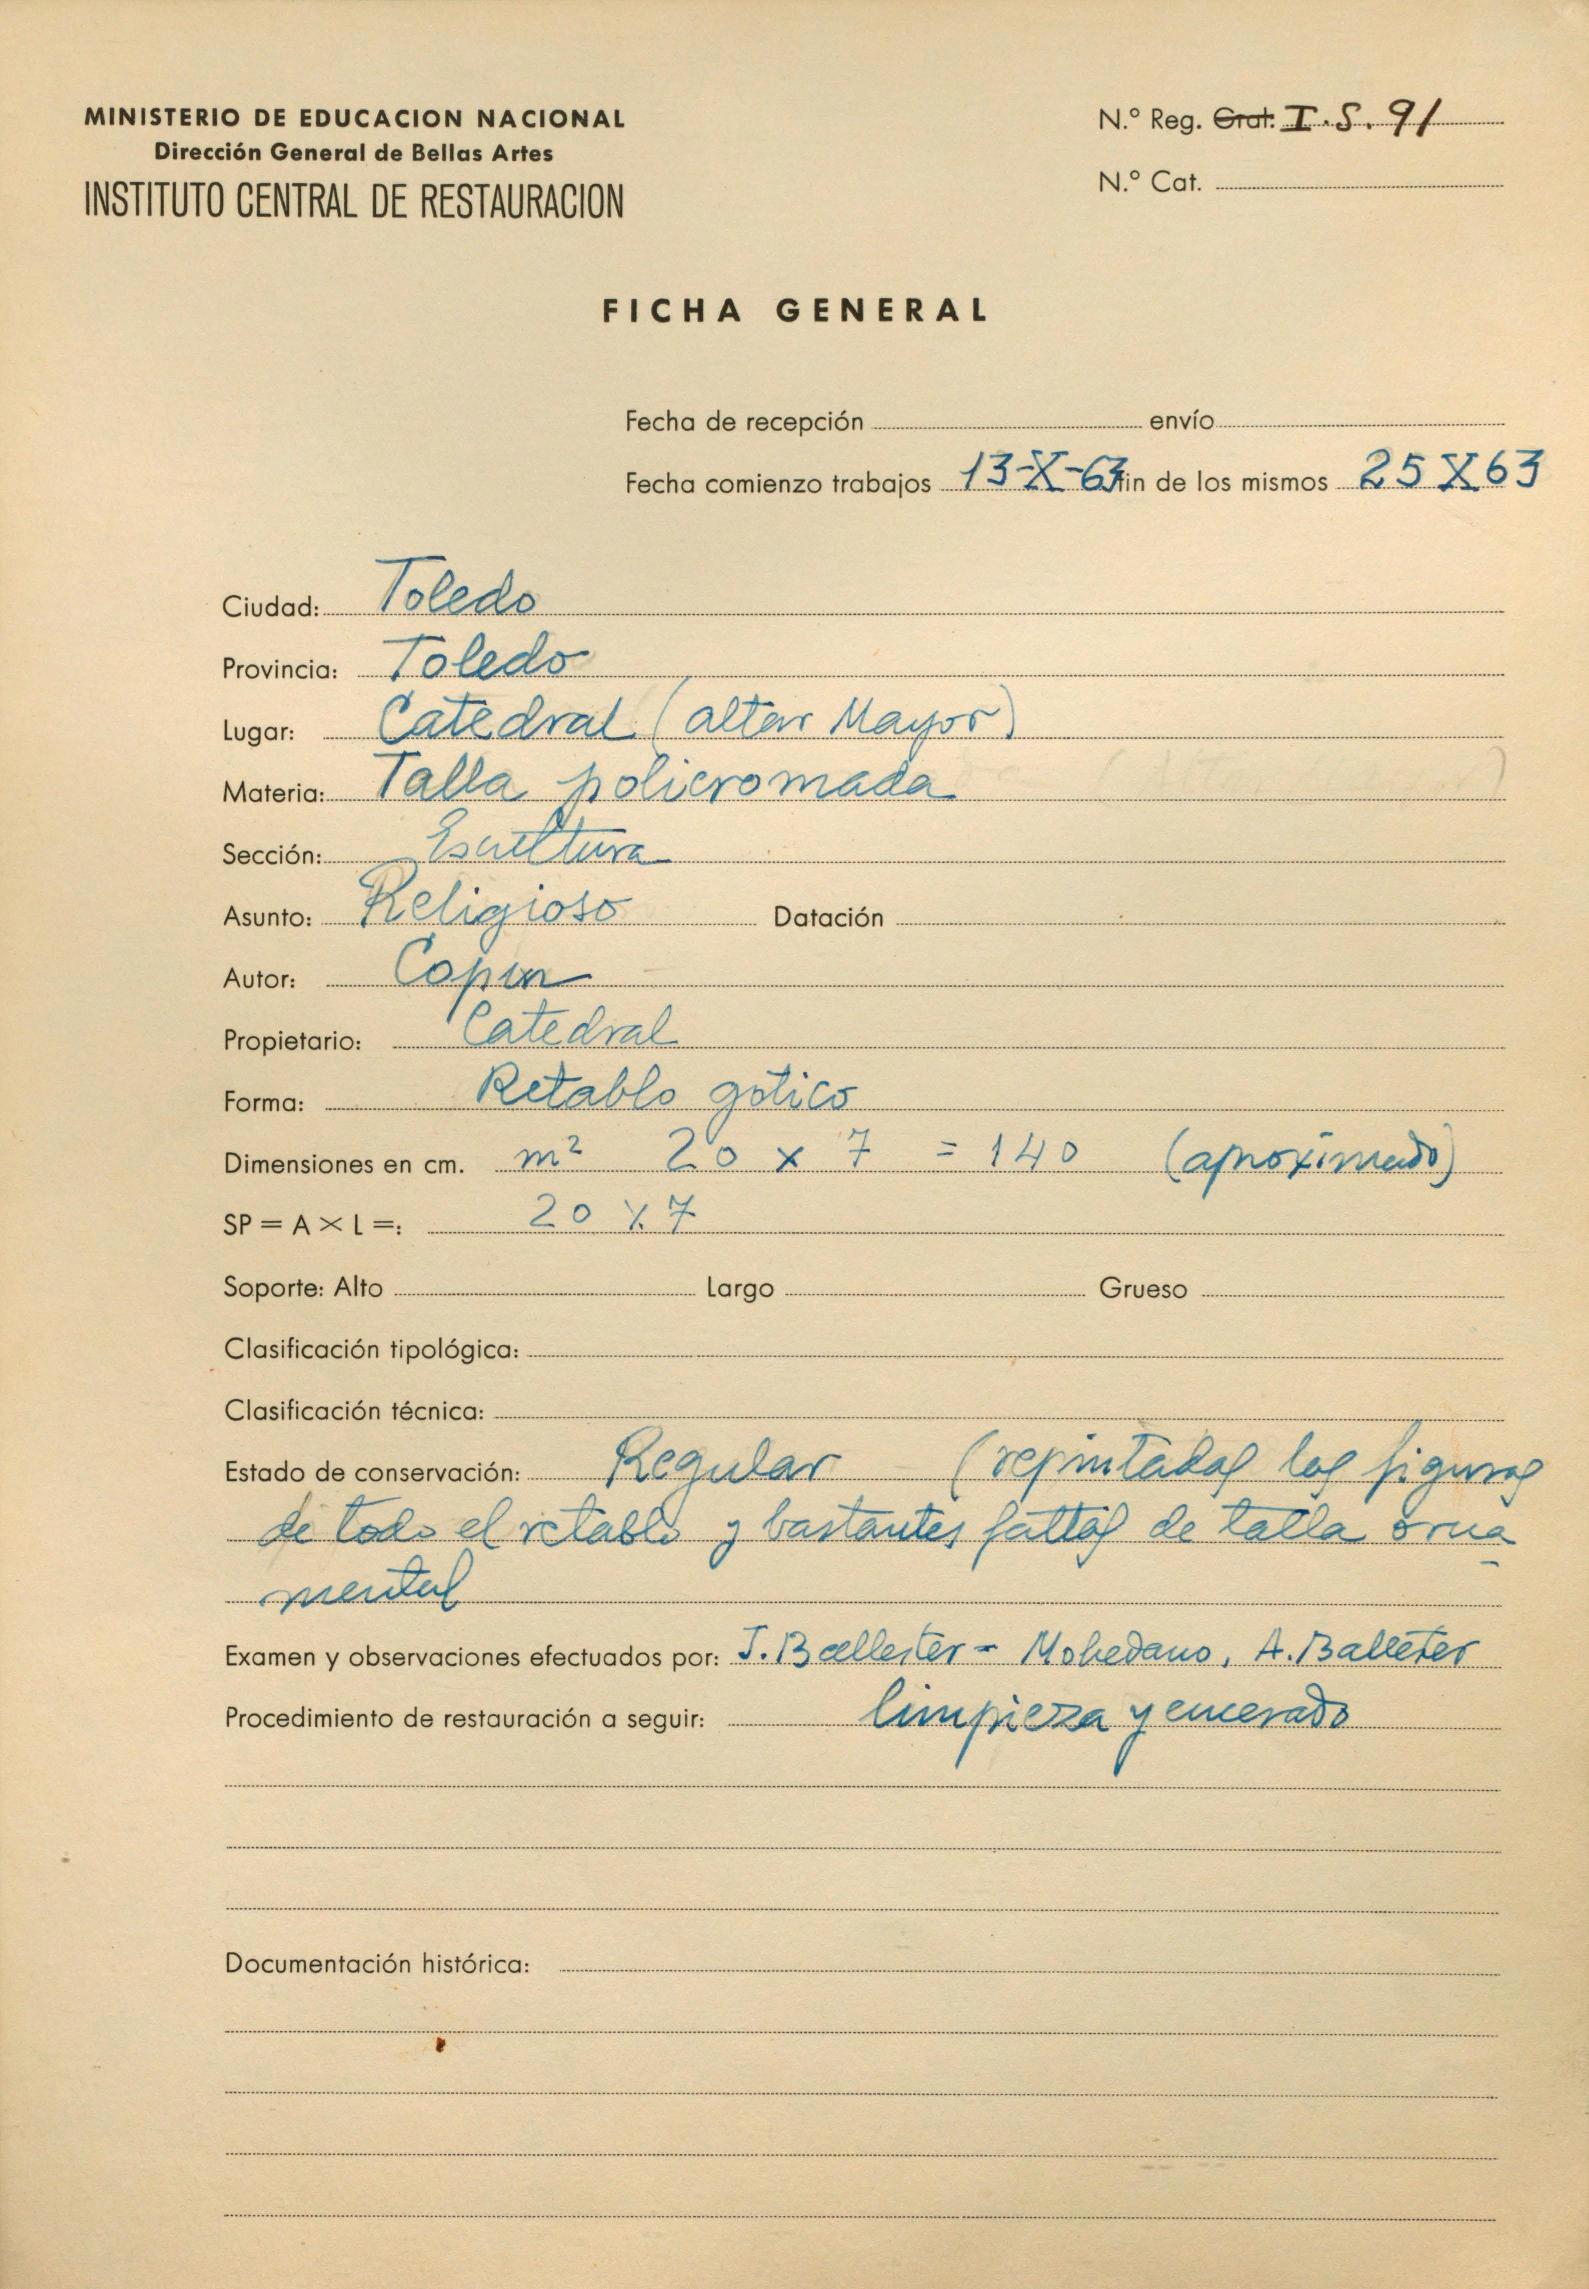 MINISTERIO DE EDUCACION NACIONAL
Dirección General de Bellas Artes
INSTITUTO CENTRAL DE RESTAURACION
N.º Reg. Grat. I.S.91
N.º Cat.
FICHA GENERAL
Fecha de recepción envío
Fecha comienzo trabajos 13-X-63 fin de los mismos 25 X 63
Ciudad: Toledo
Provincia: Toledo
Lugar: Catedral (altar Mayor)
Materia: Talla policromada
Sección: Escultura
Asunto: Religioso Datación
Autor: Copin
Propietario: Catedral
Forma: Retablo gotico
Dimensiones en cm. m² 20 x 7 = 140 (aproximado)
SP = A × L =: 20 x 7
Soporte: Alto Largo Grueso
Clasificación tipológica:
Clasificación técnica:
Estado de conservación: Regular (repintadas las figuras
de todo el retablo y bastantes faltas de talla orna
mental
Examen y observaciones efectuados por: J. Ballester - Mohedano, A. Balleter
Procedimiento de restauración a seguir: limpieza y encerado
Documentación histórica: